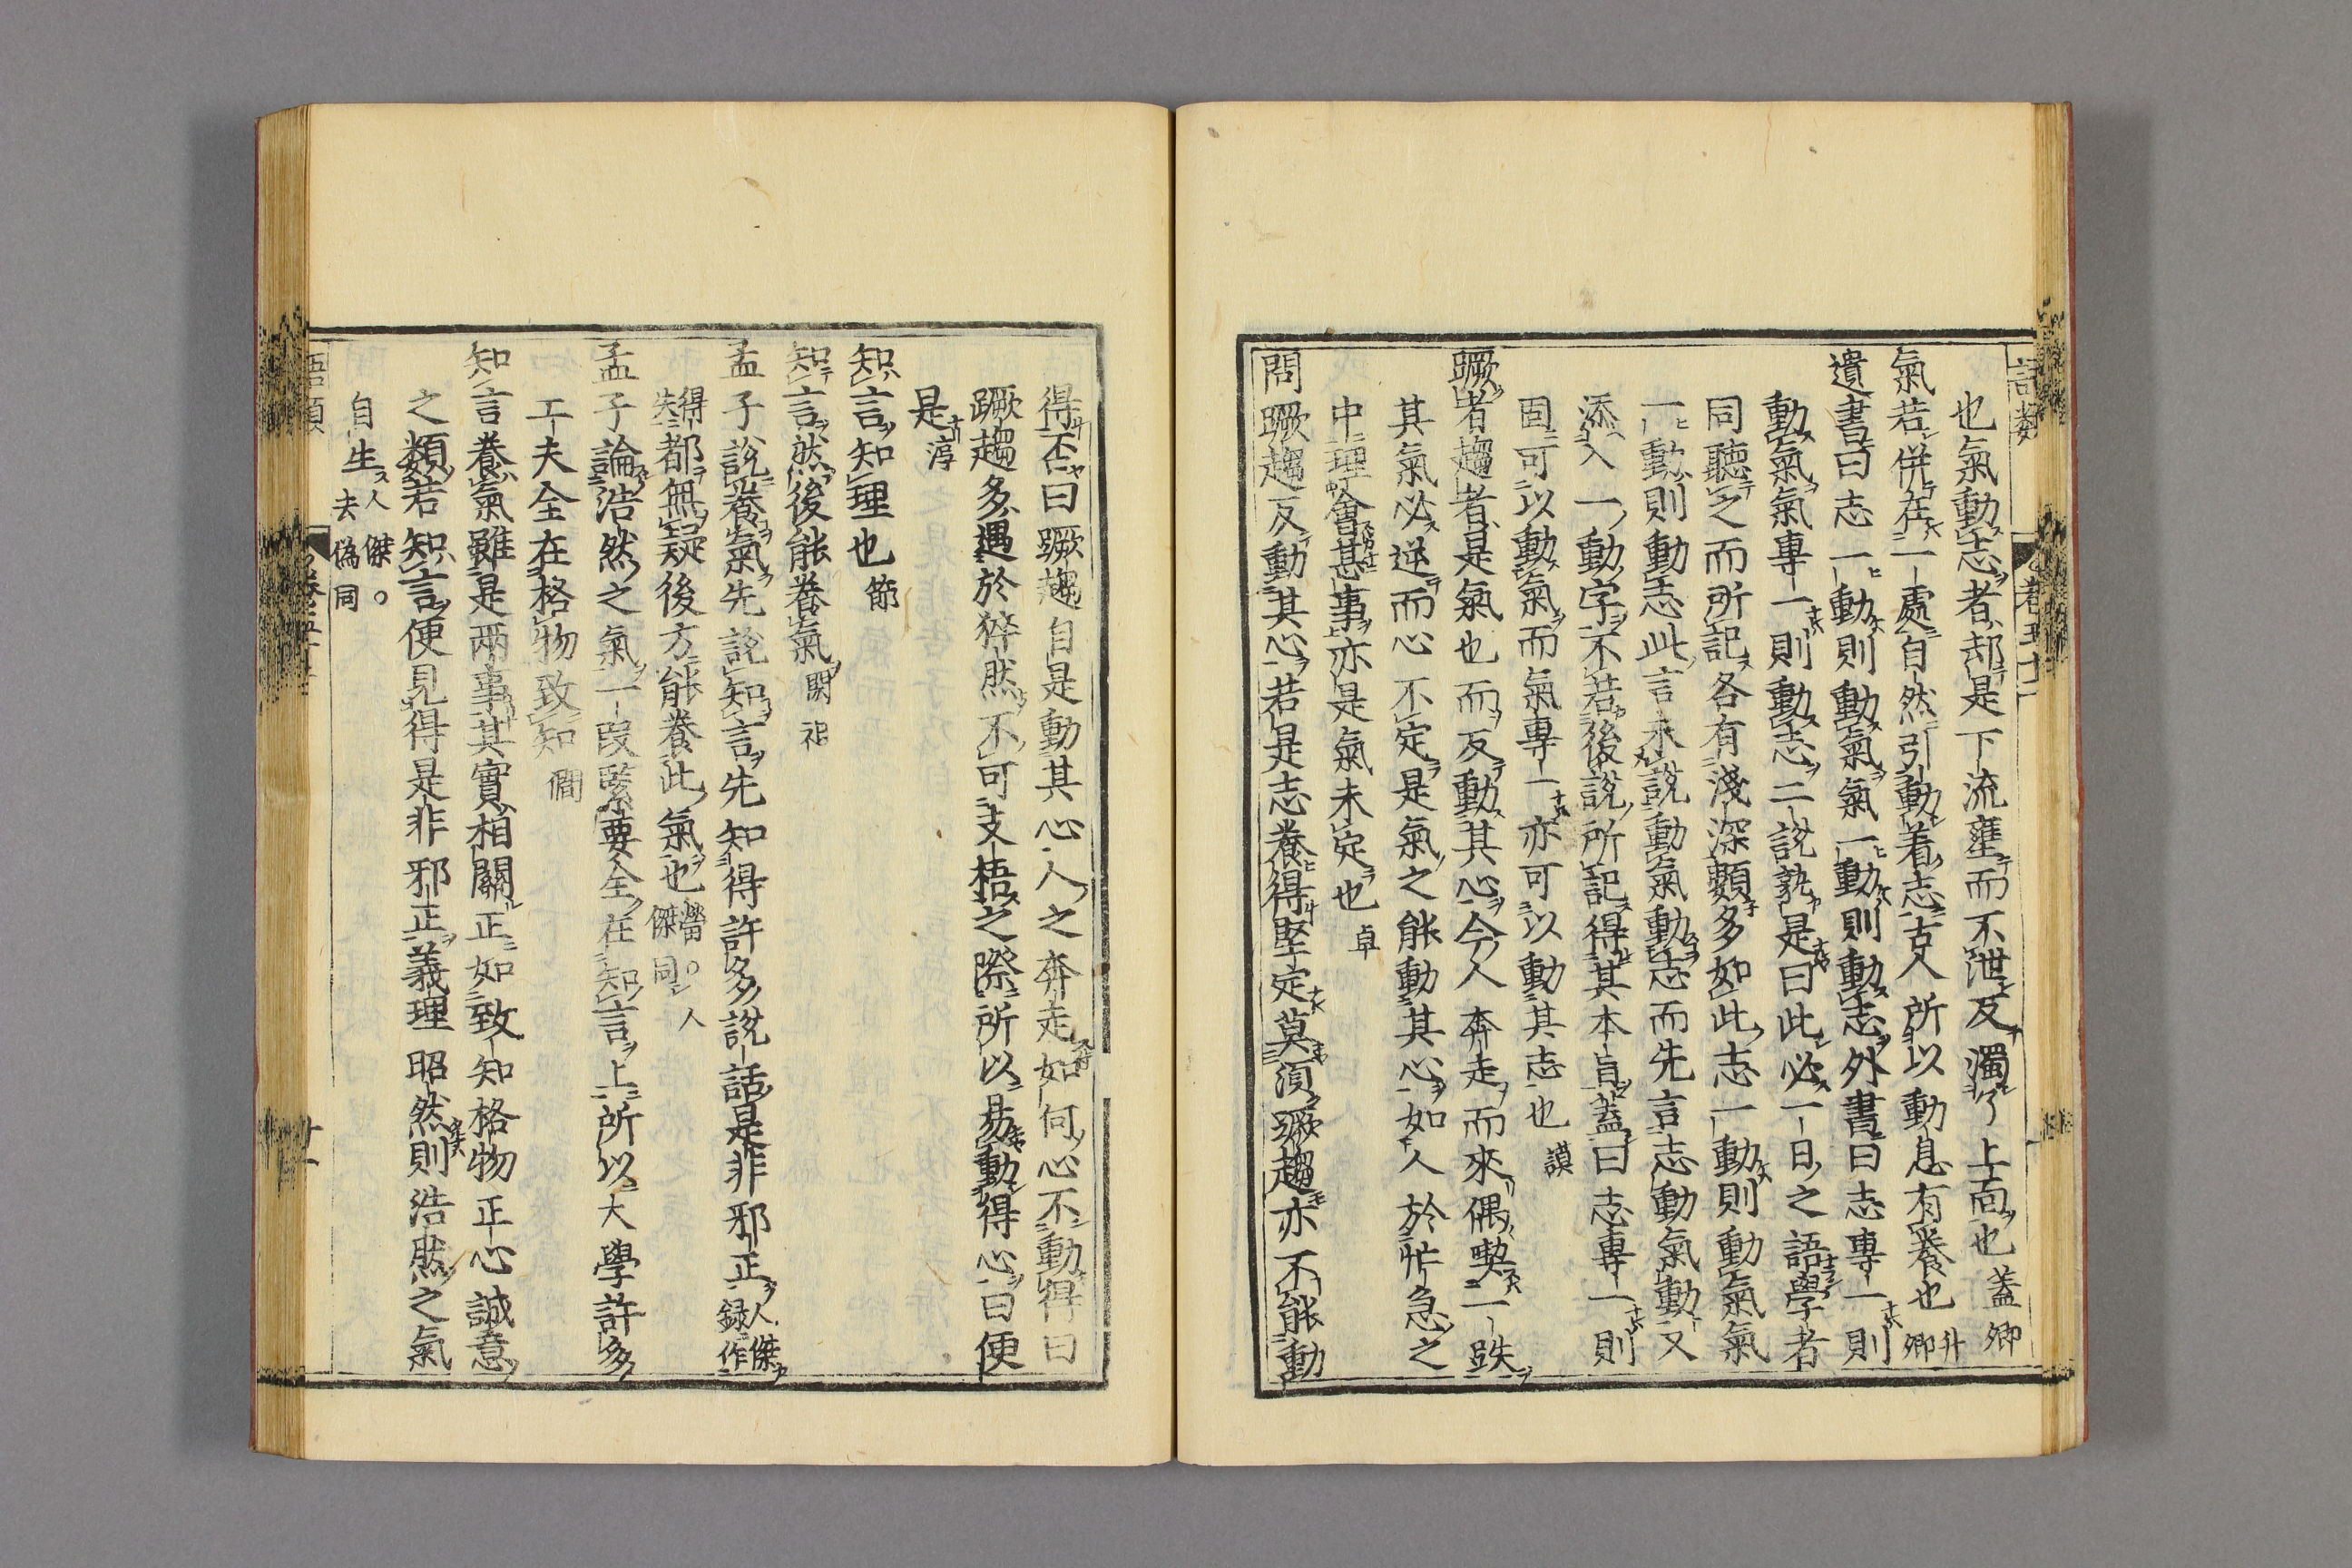 也氣動志者却是下流壅而不泄反濁了上面也蓋卿
氣若併在一處自然引動着志古人所以動息有養也升卿
遺書曰志一動則動氣氣一動則動志外書曰志專一則
動氣氣專一則動志二說孰是曰此必一日之語學者
同聽之而所記各有淺深類多如此志一動則動氣氣
一動則動志此言未說動氣動志而先言志動氣動又
添入一動字不若後說所記得其本旨蓋曰志專一則
固可以動氣而氣專一亦可以動其志也謨
蹶者趨者是氣也而反動其心今人奔走而來偶喫一跌
其氣必逆而心不定是氣之能動其心如人於忙急之
中理會甚事亦是氣未定也卓
問蹶趨反動其心若是志養得堅定莫須蹶趨亦不能動
得否曰蹶趨自是動其心人之奔走如何心不動得曰
蹶趨多遇於猝然不可支梧之際所以易動得心曰便
是淳
知言知理也節
知言然後能養氣閎祖
孟子說養氣先說知言先知得許多說話是非邪正人傑錄作
得失都無疑後方能養此氣也㽦○人傑同
孟子論浩然之氣一段緊要全在知言上所以大學許多
工夫全在格物致知僩
知言養氣雖是兩事其實相關正如致知格物正心誠意
之類若知言便見得是非邪正義理昭然則浩然之氣
自生人傑○去偽同
語類
卷五十
十一